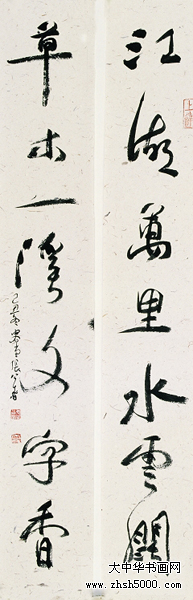 江湖萬里水雲闊
草木一溪文字香
大中华书画网
www.zhsh5000.com